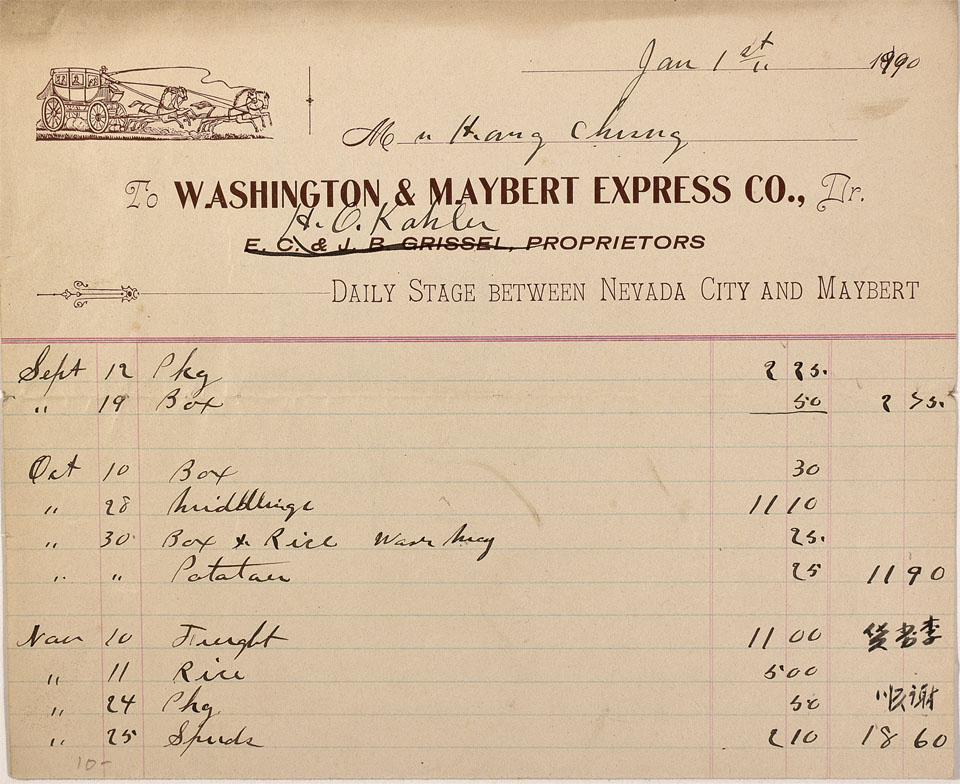 Jan 1st 1890
M Hong Chung
To WASHINGTON & MAYBERT EXPRESS CO., Dr.
H. O. Kahler
E. C. & J. B. GRISSEL, PROPRIETORS
DAILY STAGE BETWEEN NEVADA CITY AND MAYBERT
Sept 12 Pkg 2 25.
" 19 Box 50 2 75.
Oct 10 Box 30
" 28 Middlings 11 10
" 30 Box & Rice 25.
" " Potatoes 25 11 90
Nov 10 Freight 11 00
" 11 Rice 5 00
" 24 Pkg 50
" 25 Spuds 2 10 18 60
10-